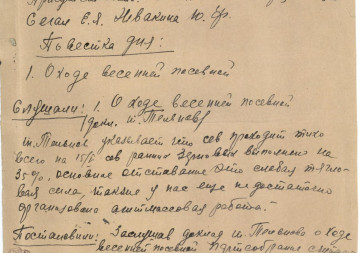 Сегал Е.Я. Невакина Ю. Гр.
Повестка дня:
1. О ходе весенней посевной
Слушали: 1. О ходе весенней посевной
/докл. т. Теплов/
т. указывает что сев проходит тихо
всего на 15/V сев ранних зерновых выполнено на
35%, основное отставание это слабая тягло-
вая сила, также у нас еще недостаточно
организована агитмассовая работа.
Постановили: Заслушав доклад т. о ходе
весенней посевной партсобрание